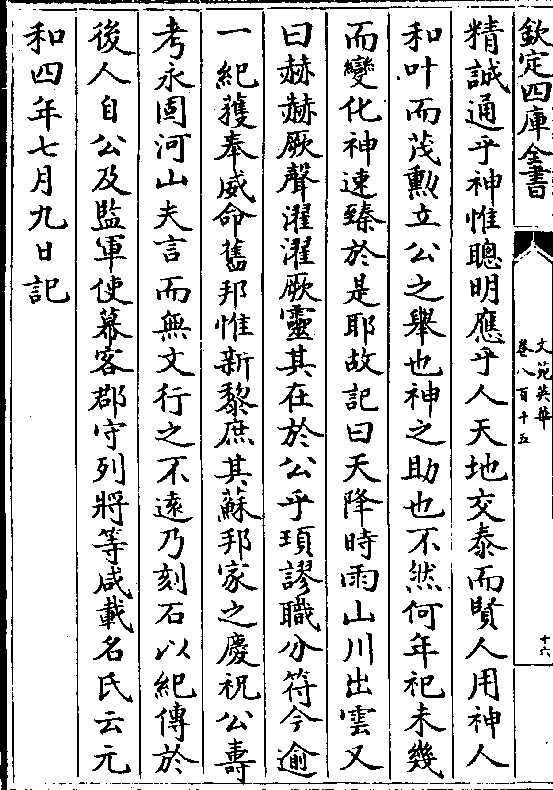 欽定四庫全書
文苑英華
卷八百十五
十六
精誠通乎神惟聰明應乎人天地交泰而賢人用神人
和叶而茂勲立公之舉也神之助也不然何年祀未幾
而變化神速臻於是耶故記曰天降時雨山川出雲又
曰赫赫厥聲濯濯厥靈其在於公乎頊謬職分符今逾
一紀獲奉威命舊邦惟新黎庶其蘇邦家之慶祝公壽
考永固河山夫言而無文行之不逺乃刻石以紀傳於
後人自公及監軍使幕客郡守列將等咸載名氏云元
和四年七月九日記